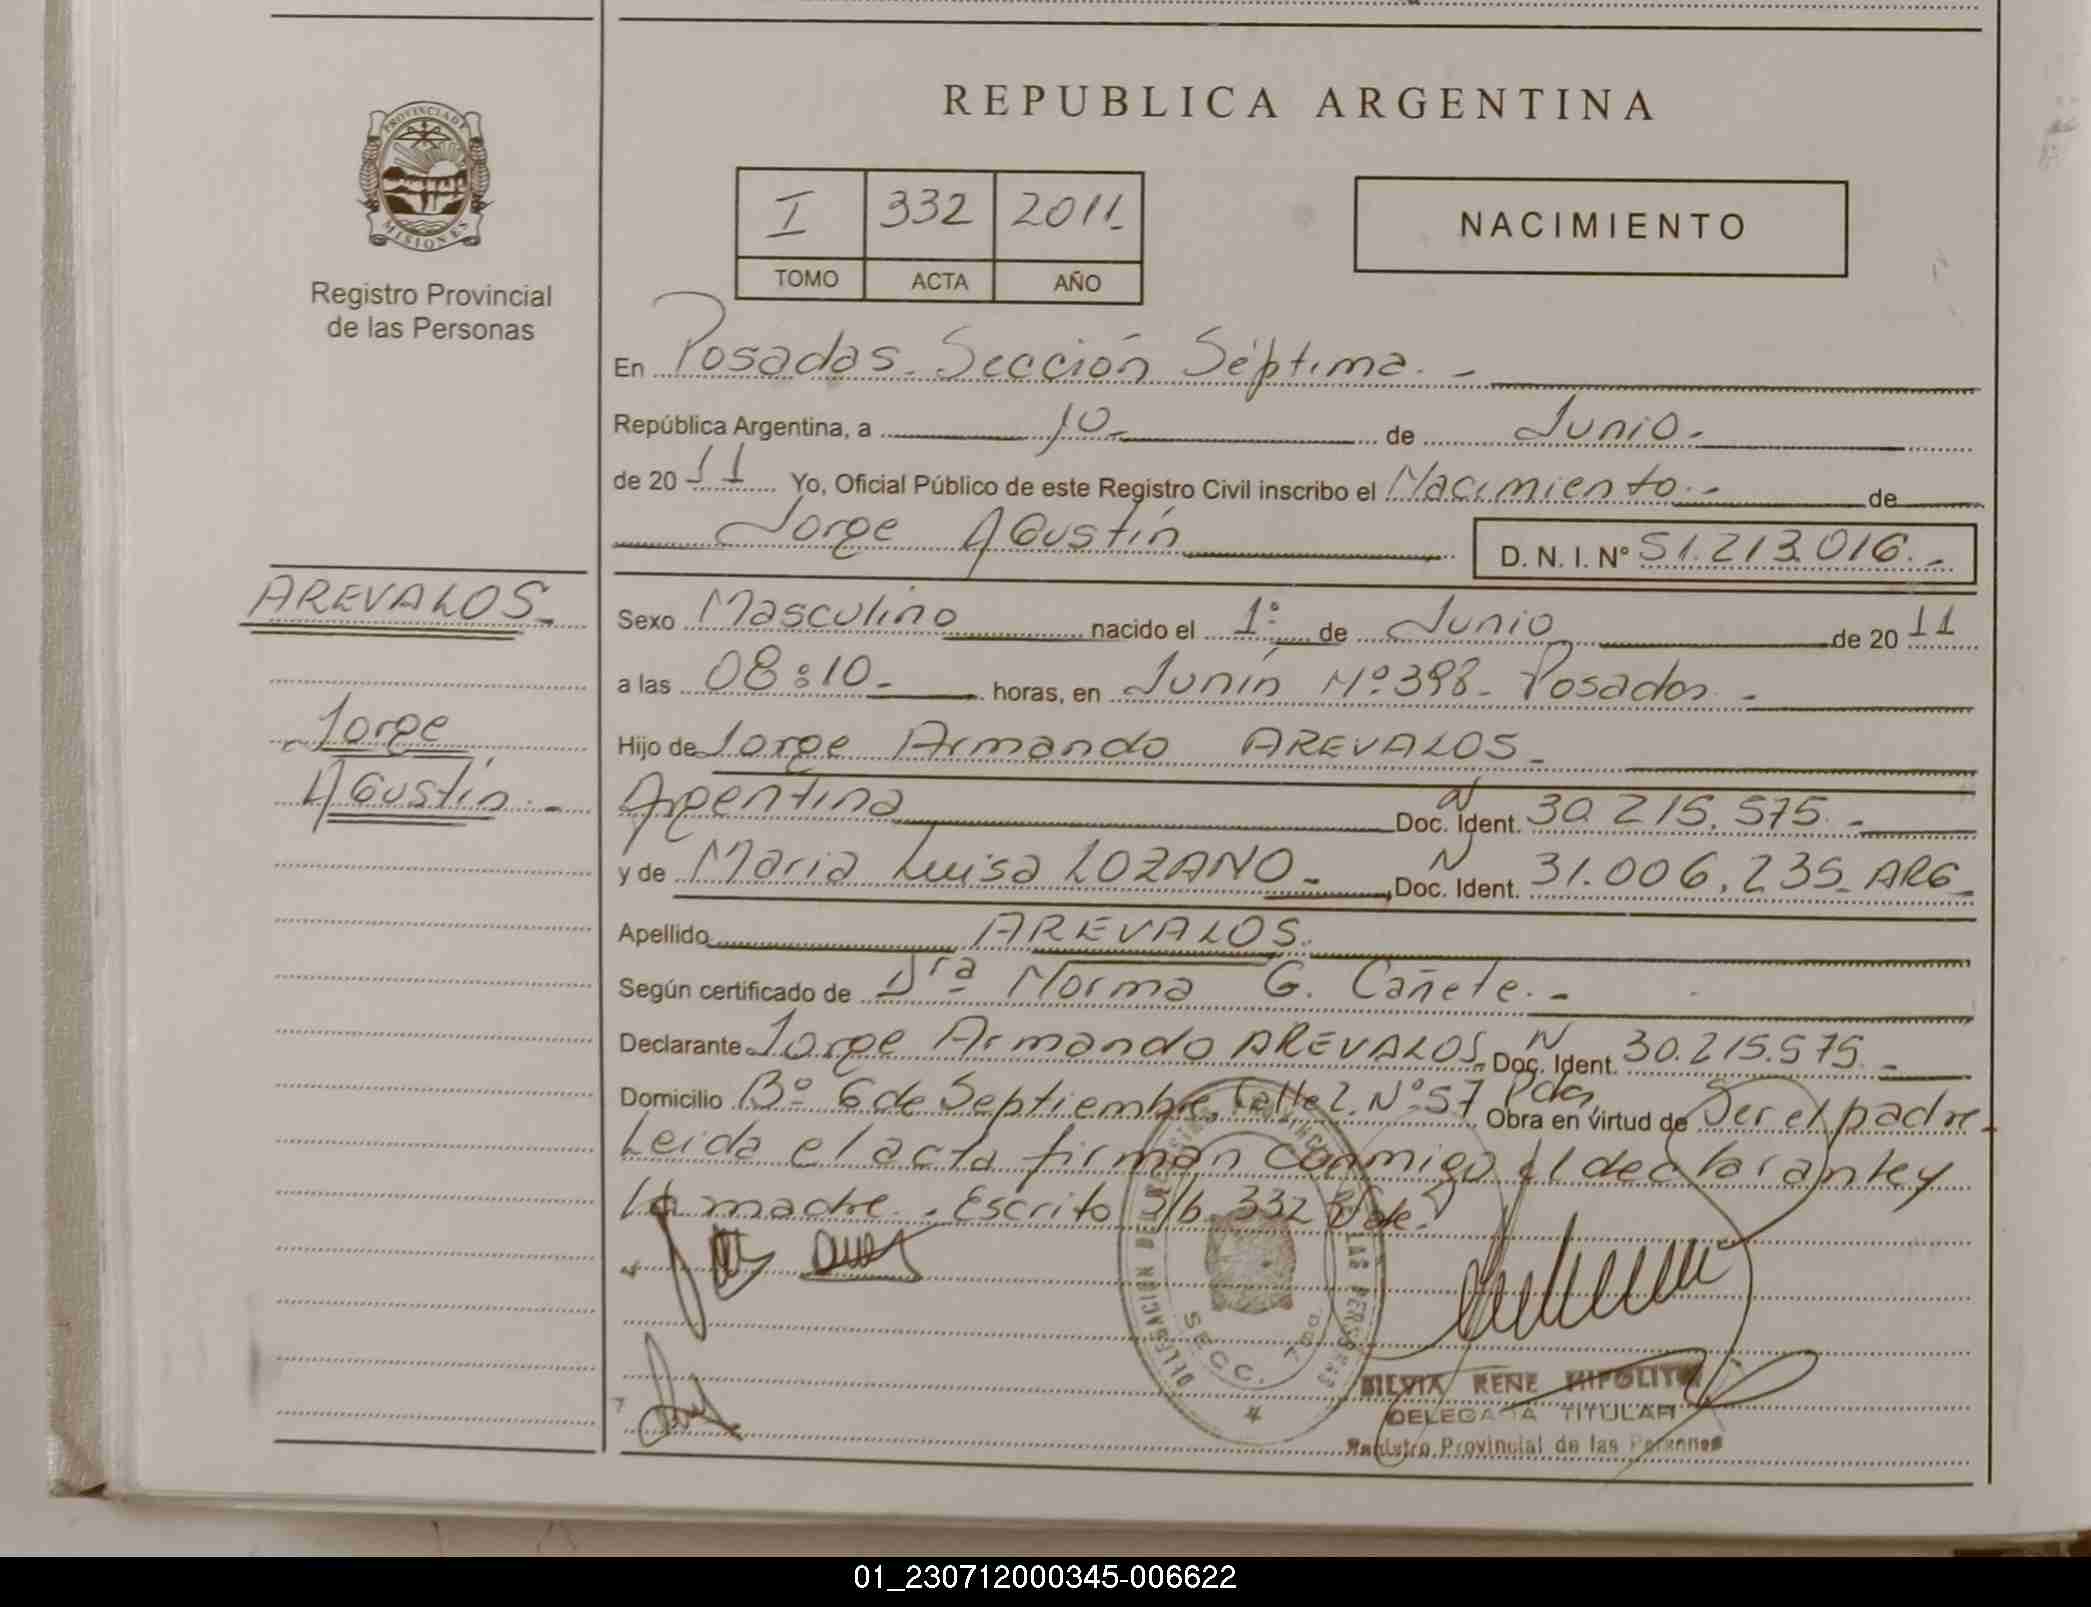 PROVINCIA DE
MISIONES
Registro Provincial
de las Personas
AREVALOS.-
Jorge
Agustín.-
REPUBLICA ARGENTINA
I 332 2011.-
TOMO ACTA AÑO
NACIMIENTO
En Posadas. Sección Séptima.-
República Argentina, a 10.- de Junio.-
de 2011 Yo, Oficial Público de este Registro Civil inscribo el Nacimiento.- de
Jorge Agustín D. N. I. Nº 51.213.016.-
Sexo Masculino nacido el 1º de Junio de 2011
a las 08:10.- horas, en Junín Nº 398. Posadas.-
Hijo de Jorge Armando AREVALOS.-
Argentina Doc. Ident. N 30.215.575.-
y de Maria Luisa LOZANO.- Doc. Ident. N 31.006.235. ARG.-
Apellido AREVALOS.
Según certificado de Dra Norma G. Cañete.-
Declarante Jorge Armando AREVALOS. Doc. Ident. N 30.215.575.-
Domicilio Bº 6 de Septiembre, Calle 2. Nº 57 Pdas Obra en virtud de Ser el padre.-
Leida el acta firman conmigo el declarante y
la madre.- Escrito s/b 332 Vale.
DELEGACION
SECC.
SILVIA RENE HIPOLITO
DELEGADA TITULAR
Registro Provincial de las Personas
01_230712000345-006622